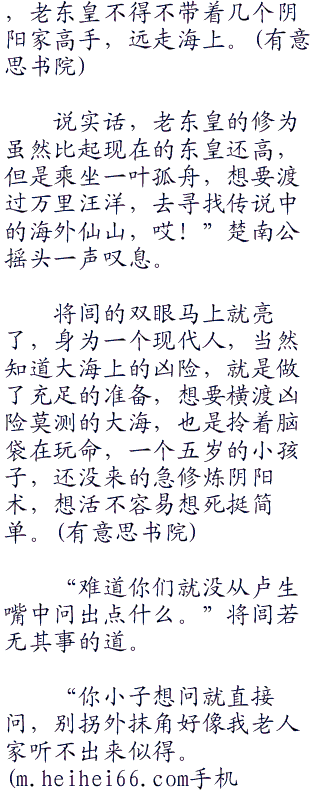 ，老东皇不得不带着几个阴
阳家高手，远走海上。(有意
思书院)
说实话，老东皇的修为
虽然比起现在的东皇还高，
但是乘坐一叶孤舟，想要渡
过万里汪洋，去寻找传说中
的海外仙山，哎！”楚南公
摇头一声叹息。
将闾的双眼马上就亮
了，身为一个现代人，当然
知道大海上的凶险，就是做
了充足的准备，想要横渡凶
险莫测的大海，也是拎着脑
袋在玩命，一个五岁的小孩
子，还没来的急修炼阴阳
术，想活不容易想死挺简
单。(有意思书院)
“难道你们就没从卢生
嘴中问出点什么。”将闾若
无其事的道。
“你小子想问就直接
问，别拐外抹角好像我老人
家听不出来似得。
(m.heihei66.com手机